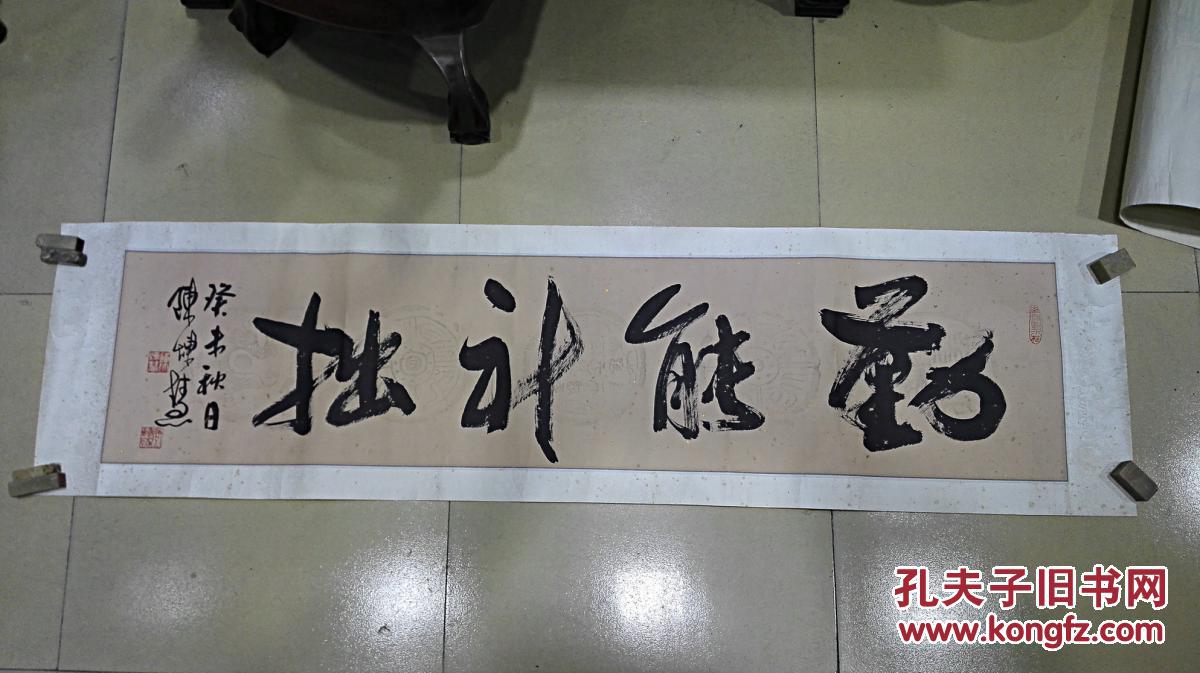 勤能补拙
癸未秋日
陳
孔夫子旧书网
www.kongfz.com